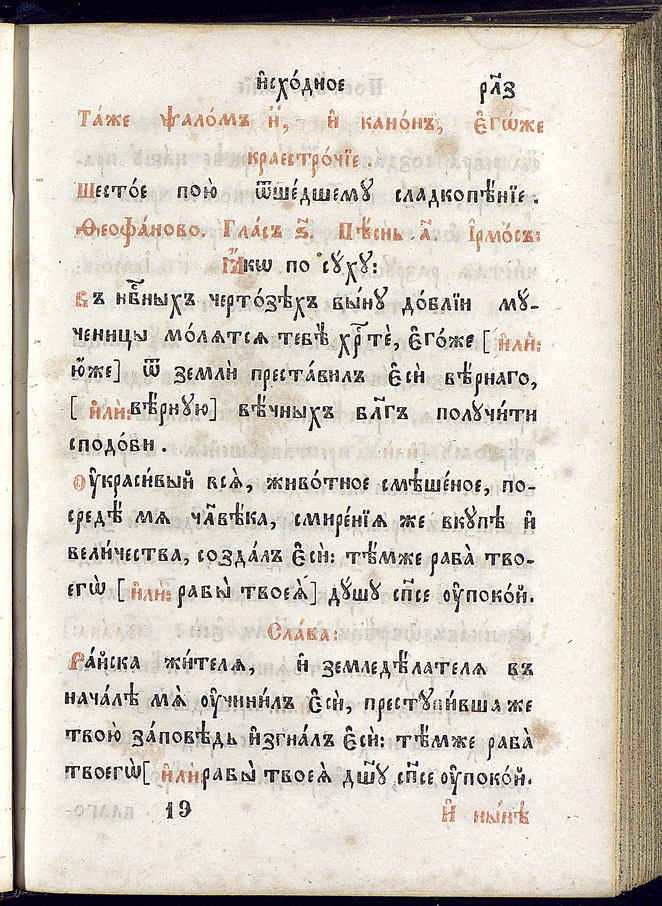 и҆схо́дное рл҃з
Та́же ѱало́мъ н҃, и҆ кано́нъ, є҆гѡ́же
краестро́чїе .
Шесто́е пою̀ ѿше́дшему сладкопѣ́нїе .
Ѳеофа́ново. Гла́съ ѕ҃. Пѣ́снь . а҃ . І҆рмо́съ:
Ꙗ҆́кѡ по сꙋ́хꙋ:
Въ нб҃ныхъ черто́зѣхъ вы́ну до́блїи му-
ченицы мо́лятся тебѣ̀ хрⷭ҇тѐ, є҆го́же [ и҆лѝ:
ю҆́же] ѿ землѝ преста́вилъ є҆сѝ вѣ́рнаго,
[ и҆лѝ: вѣ́рную] вѣ́чныхъ бл҃гъ получи́ти
сподо́би .
Оу҆краси́вый вся̀, живо́тное смѣше́ное, по-
средѣ̀ мя чл҃вѣ́ка, смире́нїя же вкупѣ̀ и҆
вели́чества, созда́лъ є҆сѝ: тѣ́мже раба̀ тво-
егѡ̀ [ и҆лѝ: рабы̀ твоея̀] душу сп҃се оу҆поко́й.
Сла́ва:
Ра́йска жи́теля и҆ земледѣ́лателя въ
нача́лѣ мя̀ оу҆чини́лъ є҆сѝ, преступи́вша же
твою̀ за́повѣдь и҆згна́лъ є҆сѝ: тѣ́мже раба̀
твоегѡ̀ [ и҆лѝ: рабы̀ твоея̀ дш҃у сп҃се оу҆поко́й.
19 И҆ ны́нѣ